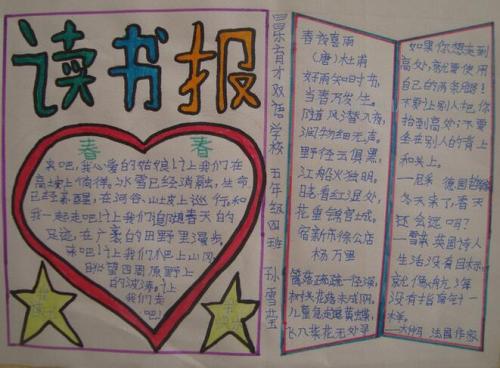 读书报
春 春
来吧,我心爱的姑娘!让我们在
高坡上倘徉。冰雪已经消融,生命
已经苏醒,在河谷、山坡上巡行和
我一起走吧!让我们追随春天的
足迹,在广袤的田野里漫步。
来吧!让我们爬上山冈,
眺望四周原野上
的波涛。让
我们走
吧!
昌乐育才双语学校 五年级四班 孙雪莹
春夜喜雨
(唐)杜甫
好雨知时节,
当春乃发生。
随风潜入夜,
润物细无声。
野径云俱黑,
江船火独明。
晓看红湿处,
花重锦官城。
宿新市徐公店
杨万里
篱落疏疏一径深,
树头花落未成阴。
儿童急走追黄蝶,
飞入菜花无处寻
如果你想走到
高处,就要使用
自己的两条腿!
不要让别人把你
抬到高处;不要
坐在别人的背上
和头上。
—尼采 德国哲
冬天来了,春天
还会远吗?
—雪莱 英国诗人
生活没有目标,
就像航海
没有指南针一
样。
—大仲马 法国作家